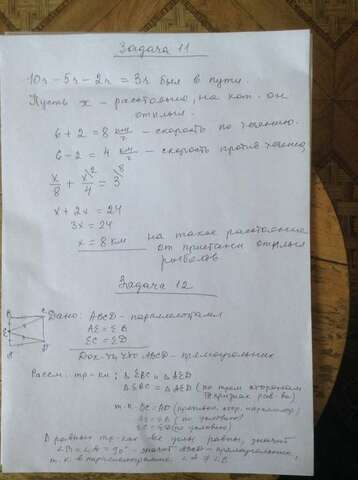 Задача 11
10ч - 5ч - 2ч = 3ч был в пути.
Пусть x - расстояние, на кот. он
отплыл.
6 + 2 = 8 км/ч - скорость по течению.
6 - 2 = 4 км/ч - скорость против течения
x/8 + x\2/4 = 3\8
x + 2x = 24
3x = 24
x = 8 км на такое расстояние
от пристани отплыл
рыболов
Задача 12
Дано: ABCD - параллелограмм
AE = EB
EC = ED
Док-ть, что ABCD - прямоугольник
Рассм. тр-ки: △ EBC и △ AED
△EBC = △AED (по трем сторонам
признак рав-ва)
т.к. BC = AD (противоп. стор. параллел.)
AE = EB (по условию)
EC = ED (по условию)
В равных тр-ках все углы равны, значит
∠B = ∠A = 90° - значит ABCD - прямоугольник,
т.к. в параллелограмме ∠A ∠B